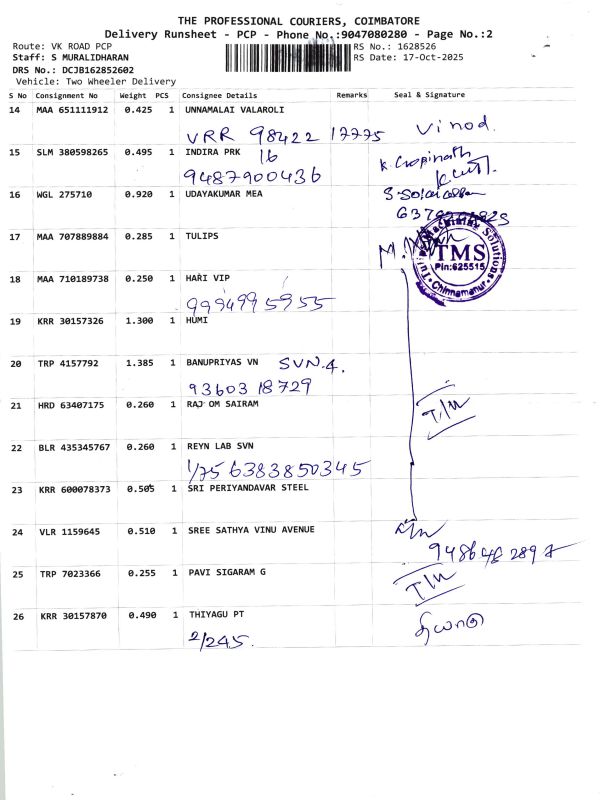 THE PROFESSIONAL COURIERS, COIMBATORE
Delivery Runsheet - PCP - Phone No.:9047080280 - Page No.:2
Route: VK ROAD PCP RS No.: 1628526
Staff: S MURALIDHARAN RS Date: 17-Oct-2025
DRS No.: DCJB162852602
Vehicle: Two Wheeler Delivery
S No Consignment No Weight PCS Consignee Details Remarks Seal & Signature
14 MAA 651111912 0.425 1 UNNAMALAI VALAROLI
VRR 98422 17775 Vinod.
15 SLM 380598265 0.495 1 INDIRA PRK 16
9487900436 K. Gopinath
16 WGL 275710 0.920 1 UDAYAKUMAR MEA
17 MAA 707889884 0.285 1 TULIPS
TMS
Pin:625515
Chinnamanur
18 MAA 710189738 0.250 1 HARI VIP
9994995955
19 KRR 30157326 1.300 1 HUMI
20 TRP 4157792 1.385 1 BANUPRIYAS VN SVN.4.
9360318729
21 HRD 63407175 0.260 1 RAJ OM SAIRAM
22 BLR 435345767 0.260 1 REYN LAB SVN
1/75 6383850345
23 KRR 600078373 0.505 1 SRI PERIYANDAVAR STEEL
24 VLR 1159645 0.510 1 SREE SATHYA VINU AVENUE
25 TRP 7023366 0.255 1 PAVI SIGARAM G
26 KRR 30157870 0.490 1 THIYAGU PT
2/245. தியாகு